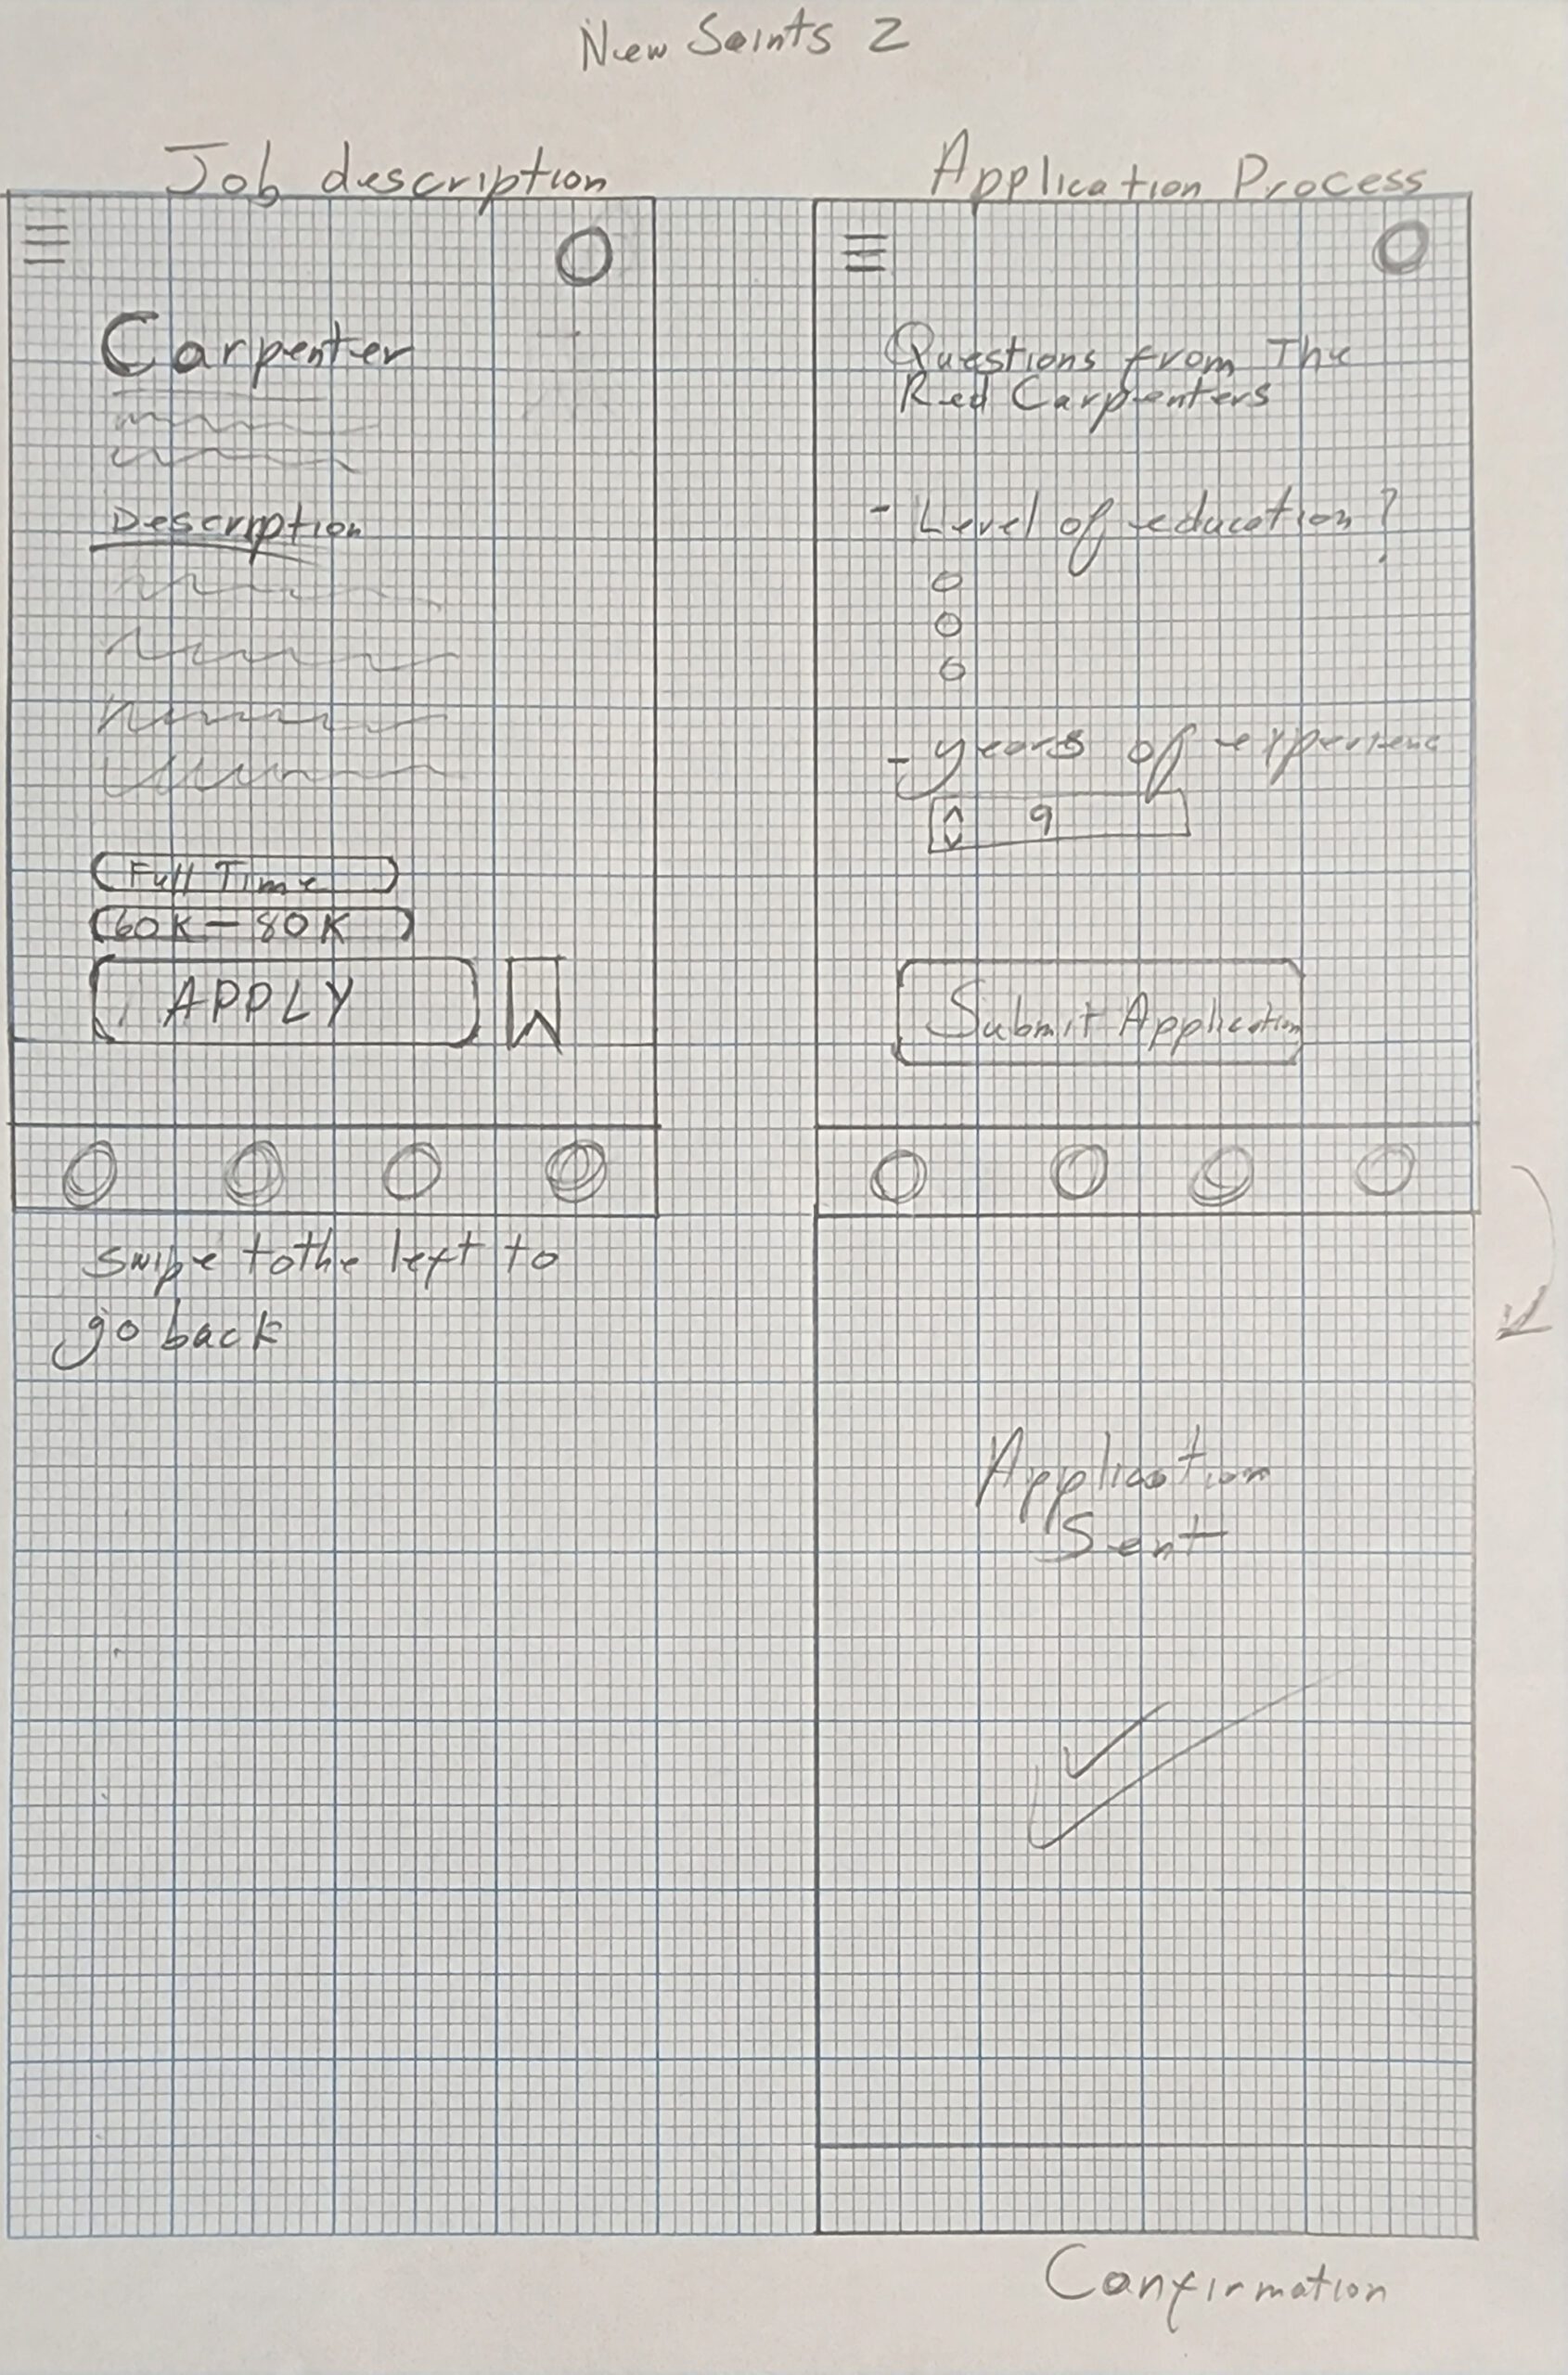 New Saints 2
Job description
Carpenter
Description
Full Time
60K - 80K
APPLY
swipe to the left to
go back
Application Process
Questions from The
Red Carpenters
- Level of education?
- years of experienc
9
Submit Application
Application
Sent
Confirmation